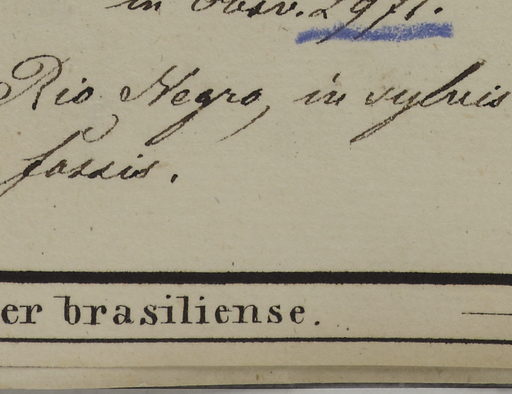 in Obsv. 2971.
Rio Negro, in sylvis
fossis.
er brasiliense.